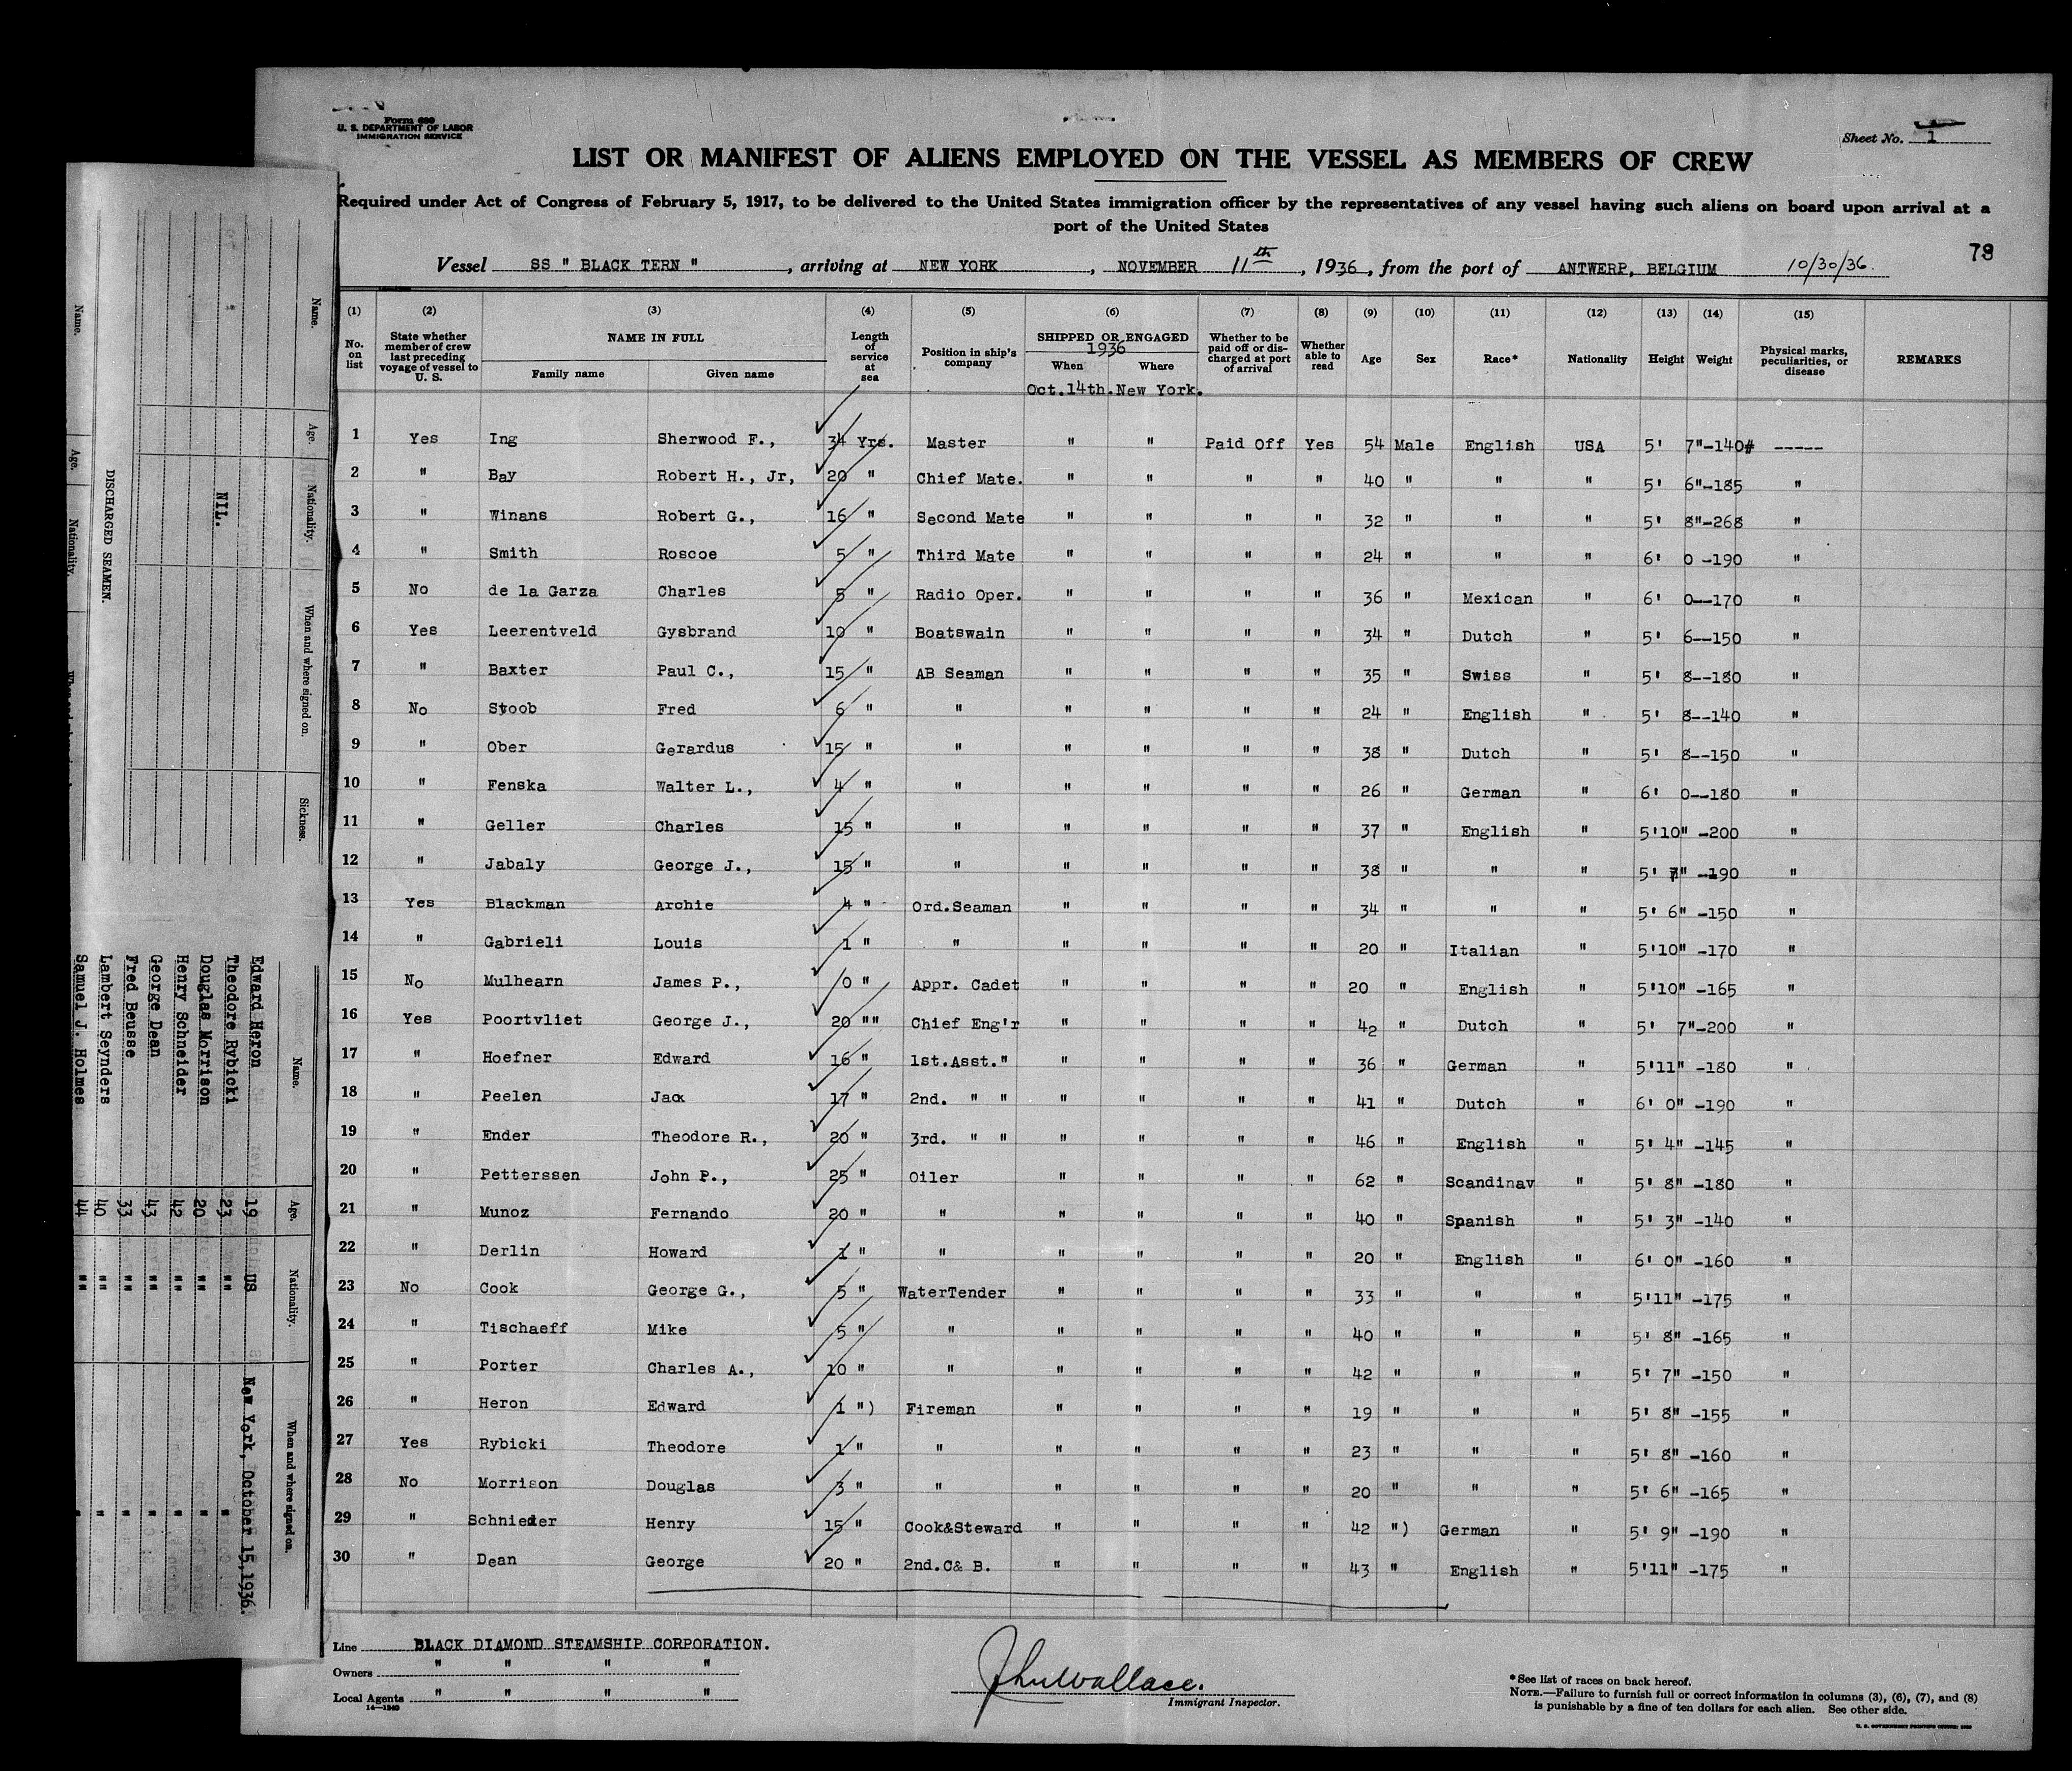 Form 689
U. S. DEPARTMENT OF LABOR
IMMIGRATION SERVICE
Sheet No. 1
LIST OR MANIFEST OF ALIENS EMPLOYED ON THE VESSEL AS MEMBERS OF CREW
Required under Act of Congress of February 5, 1917, to be delivered to the United States immigration officer by the representatives of any vessel having such aliens on board upon arrival at a
port of the United States
79
Vessel SS " BLACK TERN " , arriving at NEW YORK , NOVEMBER 11th , 1936 , from the port of ANTWERP, BELGIUM 10/30/36.
(1) (2) (3) (4) (5) (6) (7) (8) (9) (10) (11) (12) (13) (14) (15)
No. on list State whether member of crew last preceding voyage of vessel to U. S. NAME IN FULL Family name Given name Length of service at sea Position in ship's company SHIPPED OR ENGAGED 1936 When Where Whether to be paid off or discharged at port of arrival Whether able to read Age Sex Race* Nationality Height Weight Physical marks, peculiarities, or disease REMARKS
Oct.14th.New York.
1 Yes Ing Sherwood F., 34 Yrs. Master " " Paid Off Yes 54 Male English USA 5' 7"-140# -----
2 " Bay Robert H., Jr, 20 " Chief Mate. " " " " 40 " " " 5' 6"-185 "
3 " Winans Robert G., 16 " Second Mate " " " " 32 " " " 5' 8"-268 "
4 " Smith Roscoe 5 " Third Mate " " " " 24 " " " 6' 0 -190 "
5 No de la Garza Charles 5 " Radio Oper. " " " " 36 " Mexican " 6' 0--170 "
6 Yes Leerentveld Gysbrand 10 " Boatswain " " " " 34 " Dutch " 5' 6--150 "
7 " Baxter Paul C., 15 " AB Seaman " " " " 35 " Swiss " 5' 8--180 "
8 No Stoob Fred 6 " " " " " " 24 " English " 5' 8--140 "
9 " Ober Gerardus 15 " " " " " " 38 " Dutch " 5' 8--150 "
10 " Fenska Walter L., 4 " " " " " " 26 " German " 6' 0--180 "
11 " Geller Charles 15 " " " " " " 37 " English " 5'10" -200 "
12 " Jabaly George J., 15 " " " " " " 38 " " " 5' 7" -190 "
13 Yes Blackman Archie 4 " Ord.Seaman " " " " 34 " " " 5' 6" -150 "
14 " Gabrieli Louis 1 " " " " " " 20 " Italian " 5'10" -170 "
15 No Mulhearn James P., 0 " Appr. Cadet " " " " 20 " English " 5'10" -165 "
16 Yes Poortvliet George J., 20 "" Chief Eng'r " " " " 42 " Dutch " 5' 7"-200 "
17 " Hoefner Edward 16 " 1st.Asst." " " " " 36 " German " 5'11" -180 "
18 " Peelen Jack 17 " 2nd. " " " " " " 41 " Dutch " 6' 0" -190 "
19 " Ender Theodore R., 20 " 3rd. " " " " " " 46 " English " 5' 4" -145 "
20 " Petterssen John P., 25 " Oiler " " " " 62 " Scandinav " 5' 8" -180 "
21 " Munoz Fernando 20 " " " " " " 40 " Spanish " 5' 3" -140 "
22 " Derlin Howard 1 " " " " " " 20 " English " 6' 0" -160 "
23 No Cook George G., 5 " WaterTender " " " " 33 " " " 5'11" -175 "
24 " Tischaeff Mike 5 " " " " " " 40 " " " 5' 8" -165 "
25 " Porter Charles A., 10 " " " " " " 42 " " " 5' 7" -150 "
26 " Heron Edward 1 ") Fireman " " " " 19 " " " 5' 8" -155 "
27 Yes Rybicki Theodore 1 " " " " " " 23 " " " 5' 8" -160 "
28 No Morrison Douglas 3 " " " " " " 20 " " " 5' 6" -165 "
29 " Schnieder Henry 15 " Cook&Steward " " " " 42 ") German " 5' 9" -190 "
30 " Dean George 20 " 2nd.C& B. " " " " 43 " English " 5'11" -175 "
Line BLACK DIAMOND STEAMSHIP CORPORATION.
Owners " " " "
Local Agents " " " "
14—1240
JhnWallace.
Immigrant Inspector.
*See list of races on back hereof.
NOTE.—Failure to furnish full or correct information in columns (3), (6), (7), and (8)
is punishable by a fine of ten dollars for each alien. See other side.
Name. Age. Nationality. When and where signed on. Sickness.
NIL.
DISCHARGED SEAMEN.
Name. Age. Nationality.
Name. Age. Nationality. When and where signed on.
Edward Heron 19 US New York, October 15,1936.
Theodore Rybicki 23 "" "
Douglas Morrison 20 "" "
Henry Schneider 42 "" "
George Dean 43 "" "
Fred Beusse 33 "" "
Lambert Seynders 40 "" "
Samuel J. Holmes 44 "" "